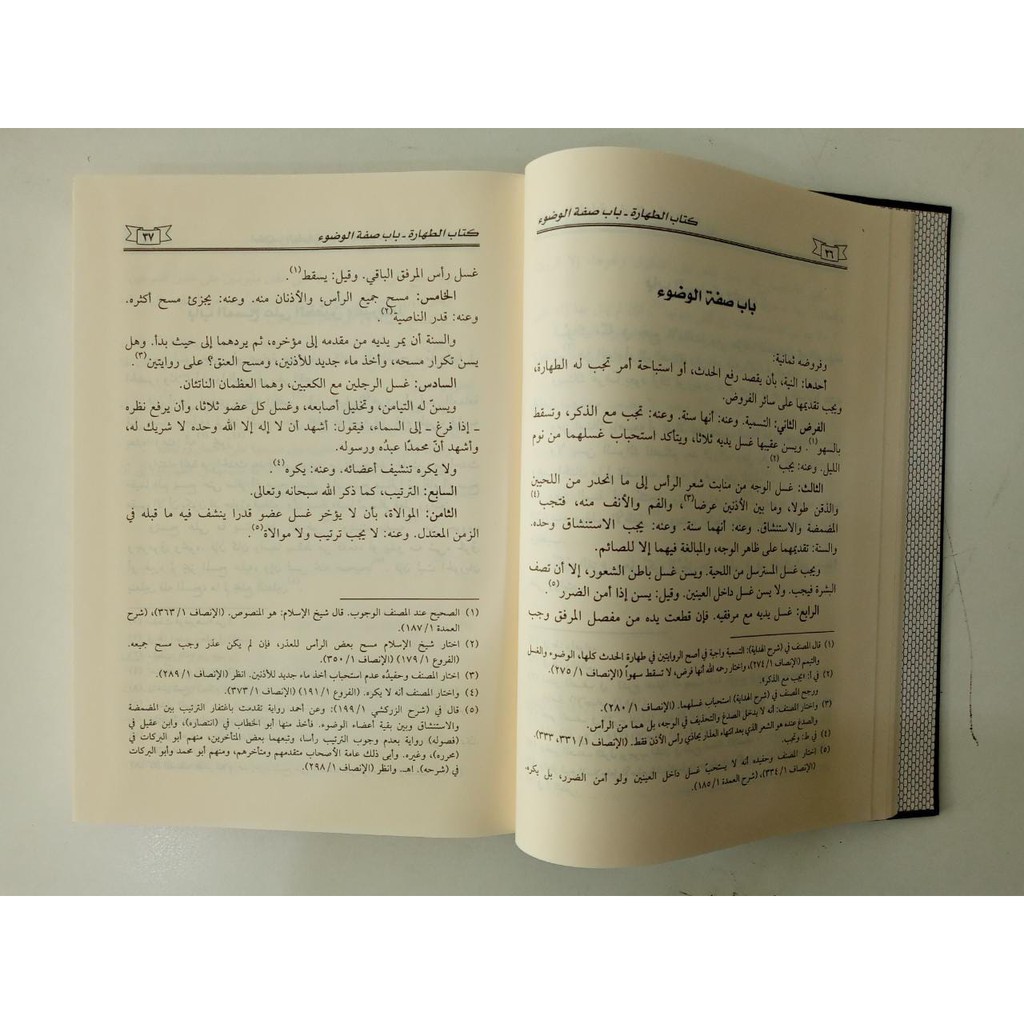 كتاب الطهارة - باب صفة الوضوء
٣٦
باب صفة الوضوء
وفروضه ثمانية:
أحدها: النية، بأن يقصد رفع الحدث، أو استباحة أمر تجب له الطهارة،
ويجب تقديمها على سائر الفروض.
الفرض الثاني: التسمية. وعنه: أنها سنة. وعنه: تجب مع الذكر، وتسقط
بالسهو(١). ويسن عقيبها غسل يديه ثلاثا، ويتأكد استحباب غسلهما من نوم
الليل. وعنه: يجب(٢).
الثالث: غسل الوجه من منابت شعر الرأس إلى ما انحدر من اللحيين
والذقن طولا، وما بين الأذنين عرضا(٣)، والفم والأنف منه، فتجب(٤)
المضمضة والاستنشاق. وعنه: أنهما سنة. وعنه: يجب الاستنشاق وحده.
والسنة: تقديمهما على ظاهر الوجه، والمبالغة فيهما إلا للصائم.
ويجب غسل المسترسل من اللحية. ويسن غسل باطن الشعور، إلا أن تصف
البشرة فيجب. ولا يسن غسل داخل العينين. وقيل: يسن إذا أمن الضرر(٥).
الرابع: غسل يديه مع مرفقيه. فإن قطعت يده من مفصل المرفق وجب
(١) قال المصنف في (شرح الهداية): التسمية واجبة في أصح الروايتين في طهارة الحدث كلها، الوضوء والغسل
والتيمم (الإنصاف ١/ ٢٧٤)، واختار رحمه الله أنها فرض، لا تسقط سهواً (الإنصاف ١/ ٢٧٥).
(٢) في أ: «يجب مع الذكر».
ورجح المصنف في (شرح الهداية) استحباب غسلهما. (الإنصاف ١/ ٢٨٠).
(٣) واختار المصنف: أنه لا يدخل الصدغ والتحذيف في الوجه، بل هما من الرأس.
والصدغ عنده هو الشعر الذي بعد انتهاء العذار يحاذي رأس الأذن فقط. (الإنصاف ١/ ٣٣١، ٣٣٣).
(٤) في ط: وتجب.
(٥) اختار المصنف وحفيده أنه لا يستحبّ غسل داخل العينين ولو أمن الضرر، بل يكره.
(الإنصاف ١/ ٣٣٤)، (شرح العمدة ١/ ١٨٥).
كتاب الطهارة - باب صفة الوضوء
٣٧
غسل رأس المرفق الباقي. وقيل: يسقط(١).
الخامس: مسح جميع الرأس، والأذنان منه. وعنه: يجزئ مسح أكثره.
وعنه: قدر الناصية(٢).
والسنة أن يمر يديه من مقدمه إلى مؤخره، ثم يردهما إلى حيث بدأ. وهل
يسن تكرار مسحه، وأخذ ماء جديد للأذنين، ومسح العنق؟ على روايتين(٣).
السادس: غسل الرجلين مع الكعبين، وهما العظمان الناتئان.
ويسنّ له التيامن، وتخليل أصابعه، وغسل كل عضو ثلاثا، وأن يرفع نظره
ـ إذا فرغ ـ إلى السماء، فيقول: أشهد أن لا إله إلا الله وحده لا شريك له،
وأشهد أنّ محمدًا عبدُه ورسوله.
ولا يكره تنشيف أعضائه. وعنه: يكره(٤).
السابع: الترتيب، كما ذكر الله سبحانه وتعالى.
الثامن: الموالاة، بأن لا يؤخر غسل عضو قدرا ينشف فيه ما قبله في
الزمن المعتدل. وعنه: لا يجب ترتيب ولا موالاة(٥).
(١) الصحيح عند المصنف الوجوب. قال شيخ الإسلام: هو المنصوص. (الإنصاف ١/ ٣٦٣)، (شرح
العمدة ١/ ١٨٧).
(٢) اختار شيخ الإسلام مسح بعض الرأس للعذر، فإن لم يكن عذر وجب مسح جميعه.
(الفروع ١/ ١٧٩) (الإنصاف ١/ ٣٥٠).
(٣) اختار المصنف وحفيدُه عدم استحباب أخذ ماء جديد للأذنين. انظر (الإنصاف ١/ ٢٨٩).
(٤) واختار المصنف أنه لا يكره. (الفروع ١/ ١٩١) (الإنصاف ١/ ٣٧٣).
(٥) قال في (شرح الزركشي ١/ ١٩٩): وعن أحمد رواية تقدمت باغتفار الترتيب بين المضمضة
والاستنشاق وبين بقية أعضاء الوضوء. فأخذ منها أبو الخطاب في (انتصاره)، وابن عقيل في
(فصوله) رواية بعدم وجوب الترتيب رأسا، وتبعهما بعض المتأخرين، منهم أبو البركات في
(محرره)، وغيره. وأبى ذلك عامة الأصحاب متقدمهم ومتأخرهم، ومنهم أبو محمد وأبو البركات
في (شرحه). اهـ. وانظر (الإنصاف ١/ ٢٩٨).